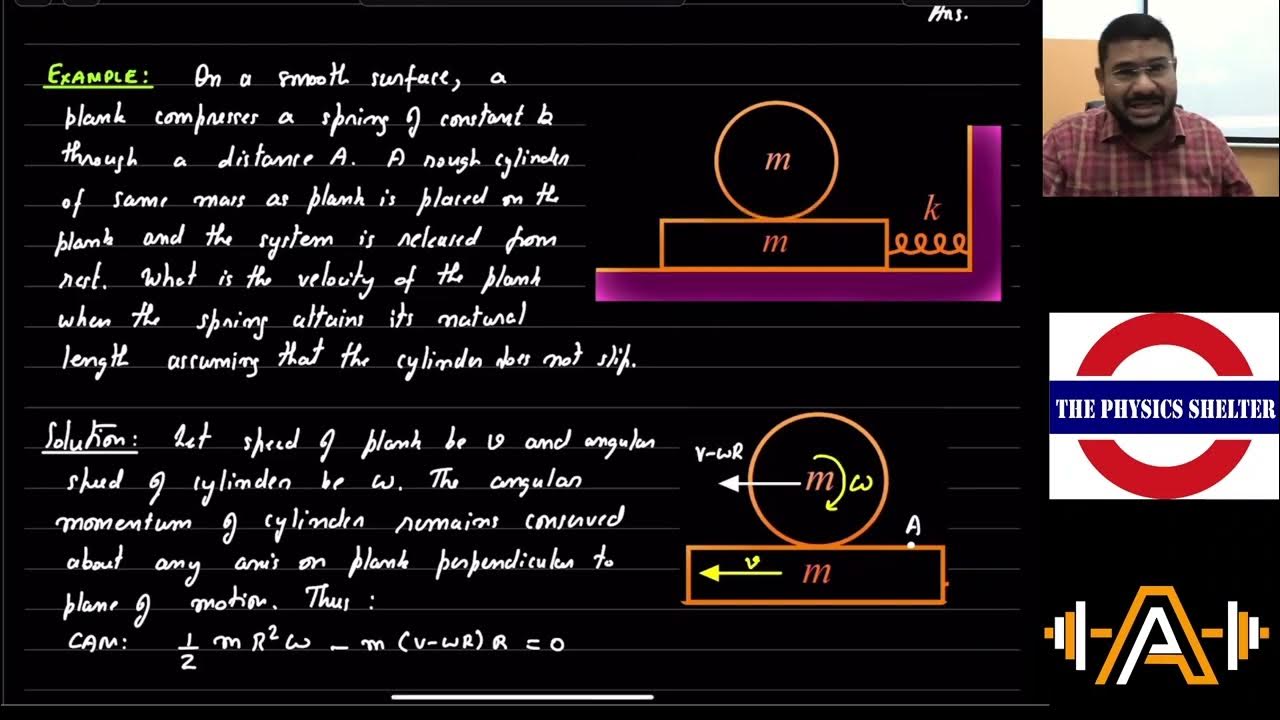 Ans.
EXAMPLE: On a smooth surface, a
plank compresses a spring of constant k
through a distance A. A rough cylinder
of same mass as plank is placed on the
plank and the system is released from
rest. What is the velocity of the plank
when the spring attains its natural
length assuming that the cylinder does not slip.
m
m
k
Solution: Let speed of plank be v and angular
speed of cylinder be ω. The angular
momentum of cylinder remains conserved
about any axis on plank perpendicular to
plane of motion. Thus :
CAM: 1/2 m R² ω - m (v-ωR) R = 0
v-ωR
m ω
A
v
m
THE PHYSICS SHELTER